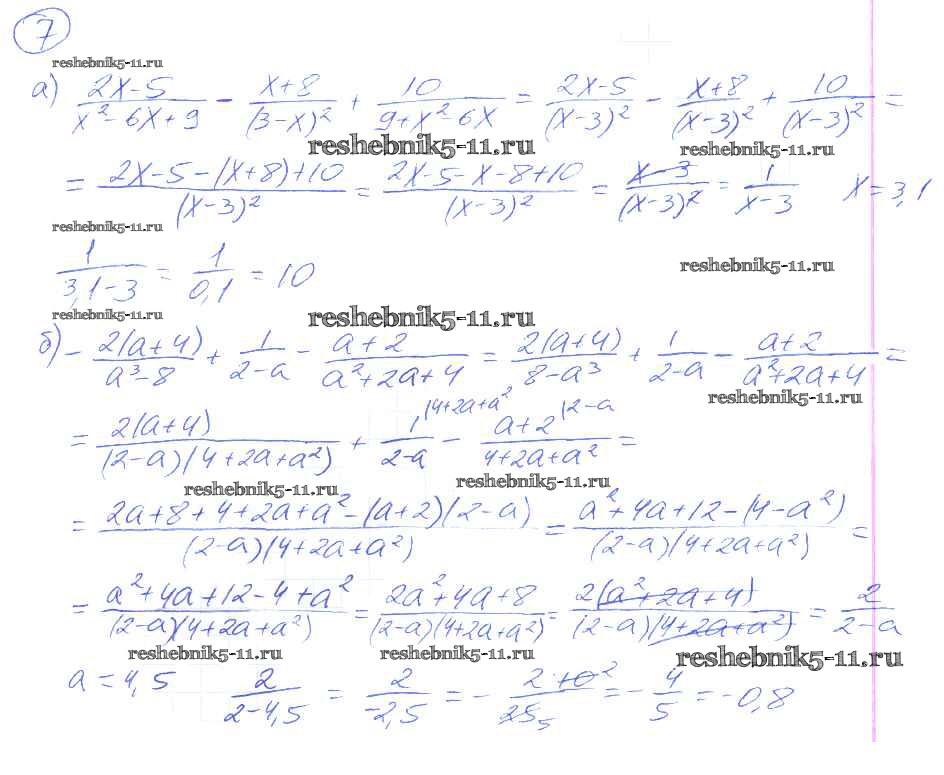 7
reshebnik5-11.ru
а) (2x-5)/(x²-6x+9) - (x+8)/(3-x)² + 10/(9+x²-6x) = (2x-5)/(x-3)² - (x+8)/(x-3)² + 10/(x-3)² =
reshebnik5-11.ru reshebnik5-11.ru
= (2x-5-(x+8)+10)/(x-3)² = (2x-5-x-8+10)/(x-3)² = (x-3)/(x-3)² = 1/(x-3) x=3,1
reshebnik5-11.ru
1/(3,1-3) = 1/0,1 = 10
reshebnik5-11.ru
reshebnik5-11.ru reshebnik5-11.ru
б) - 2(a+4)/(a³-8) + 1/(2-a) - (a+2)/(a²+2a+4) = 2(a+4)/(8-a³) + 1/(2-a) - (a+2)/(a²+2a+4) =
reshebnik5-11.ru
= 2(a+4)/((2-a)(4+2a+a²)) + 1|4+2a+a²/(2-a) - (a+2|2-a)/(4+2a+a²) =
reshebnik5-11.ru reshebnik5-11.ru
= (2a+8+4+2a+a²-(a+2)(2-a))/((2-a)(4+2a+a²)) = (a²+4a+12-(4-a²))/((2-a)(4+2a+a²)) =
= (a²+4a+12-4+a²)/((2-a)(4+2a+a²)) = (2a²+4a+8)/((2-a)(4+2a+a²)) = 2(a²+2a+4)/((2-a)(4+2a+a²)) = 2/(2-a)
reshebnik5-11.ru reshebnik5-11.ru reshebnik5-11.ru
a=4,5 2/(2-4,5) = 2/(-2,5) = - (2·10 2)/(25 5) = - 4/5 = -0,8